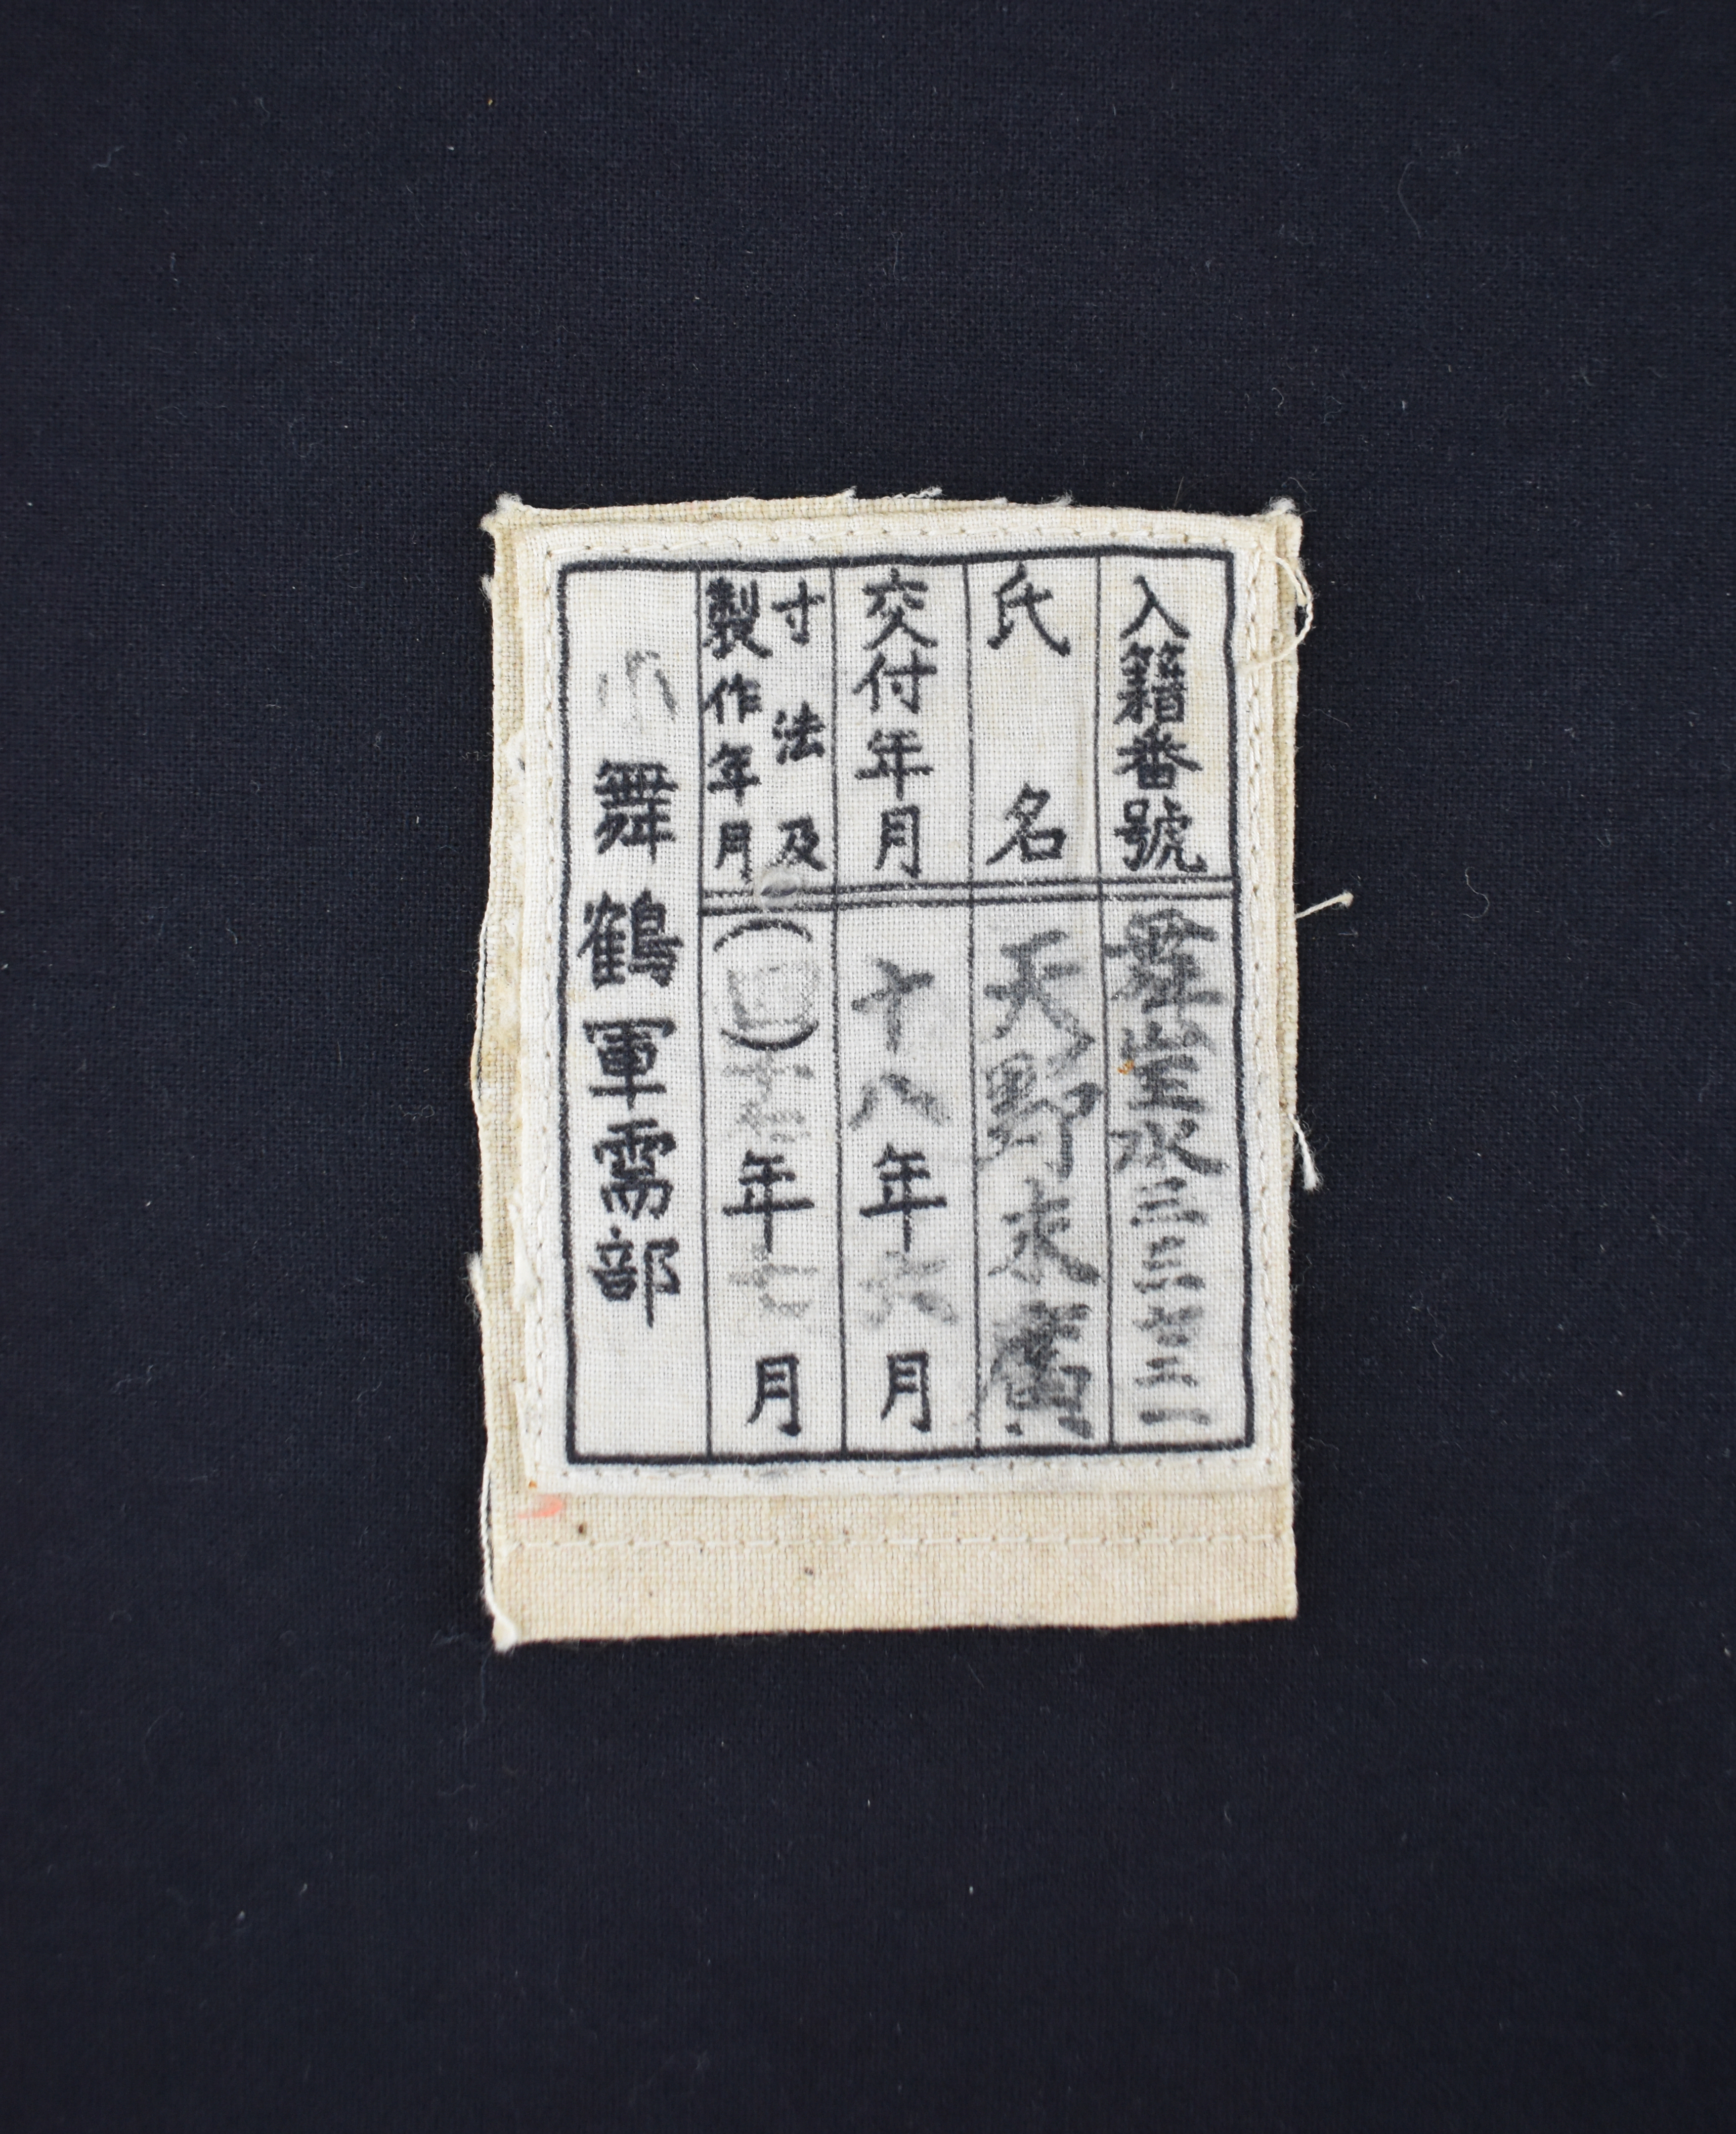 入籍番號 舞 水三三七三一
氏名 天野末廣
交付年月 十八年六月
寸法及
製作年月 (四) 十七年七月
小 舞鶴軍需部